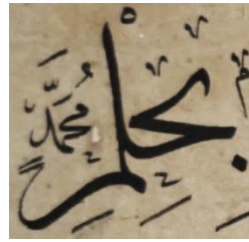 بِحِلْمِ مُحَمَّدٍ